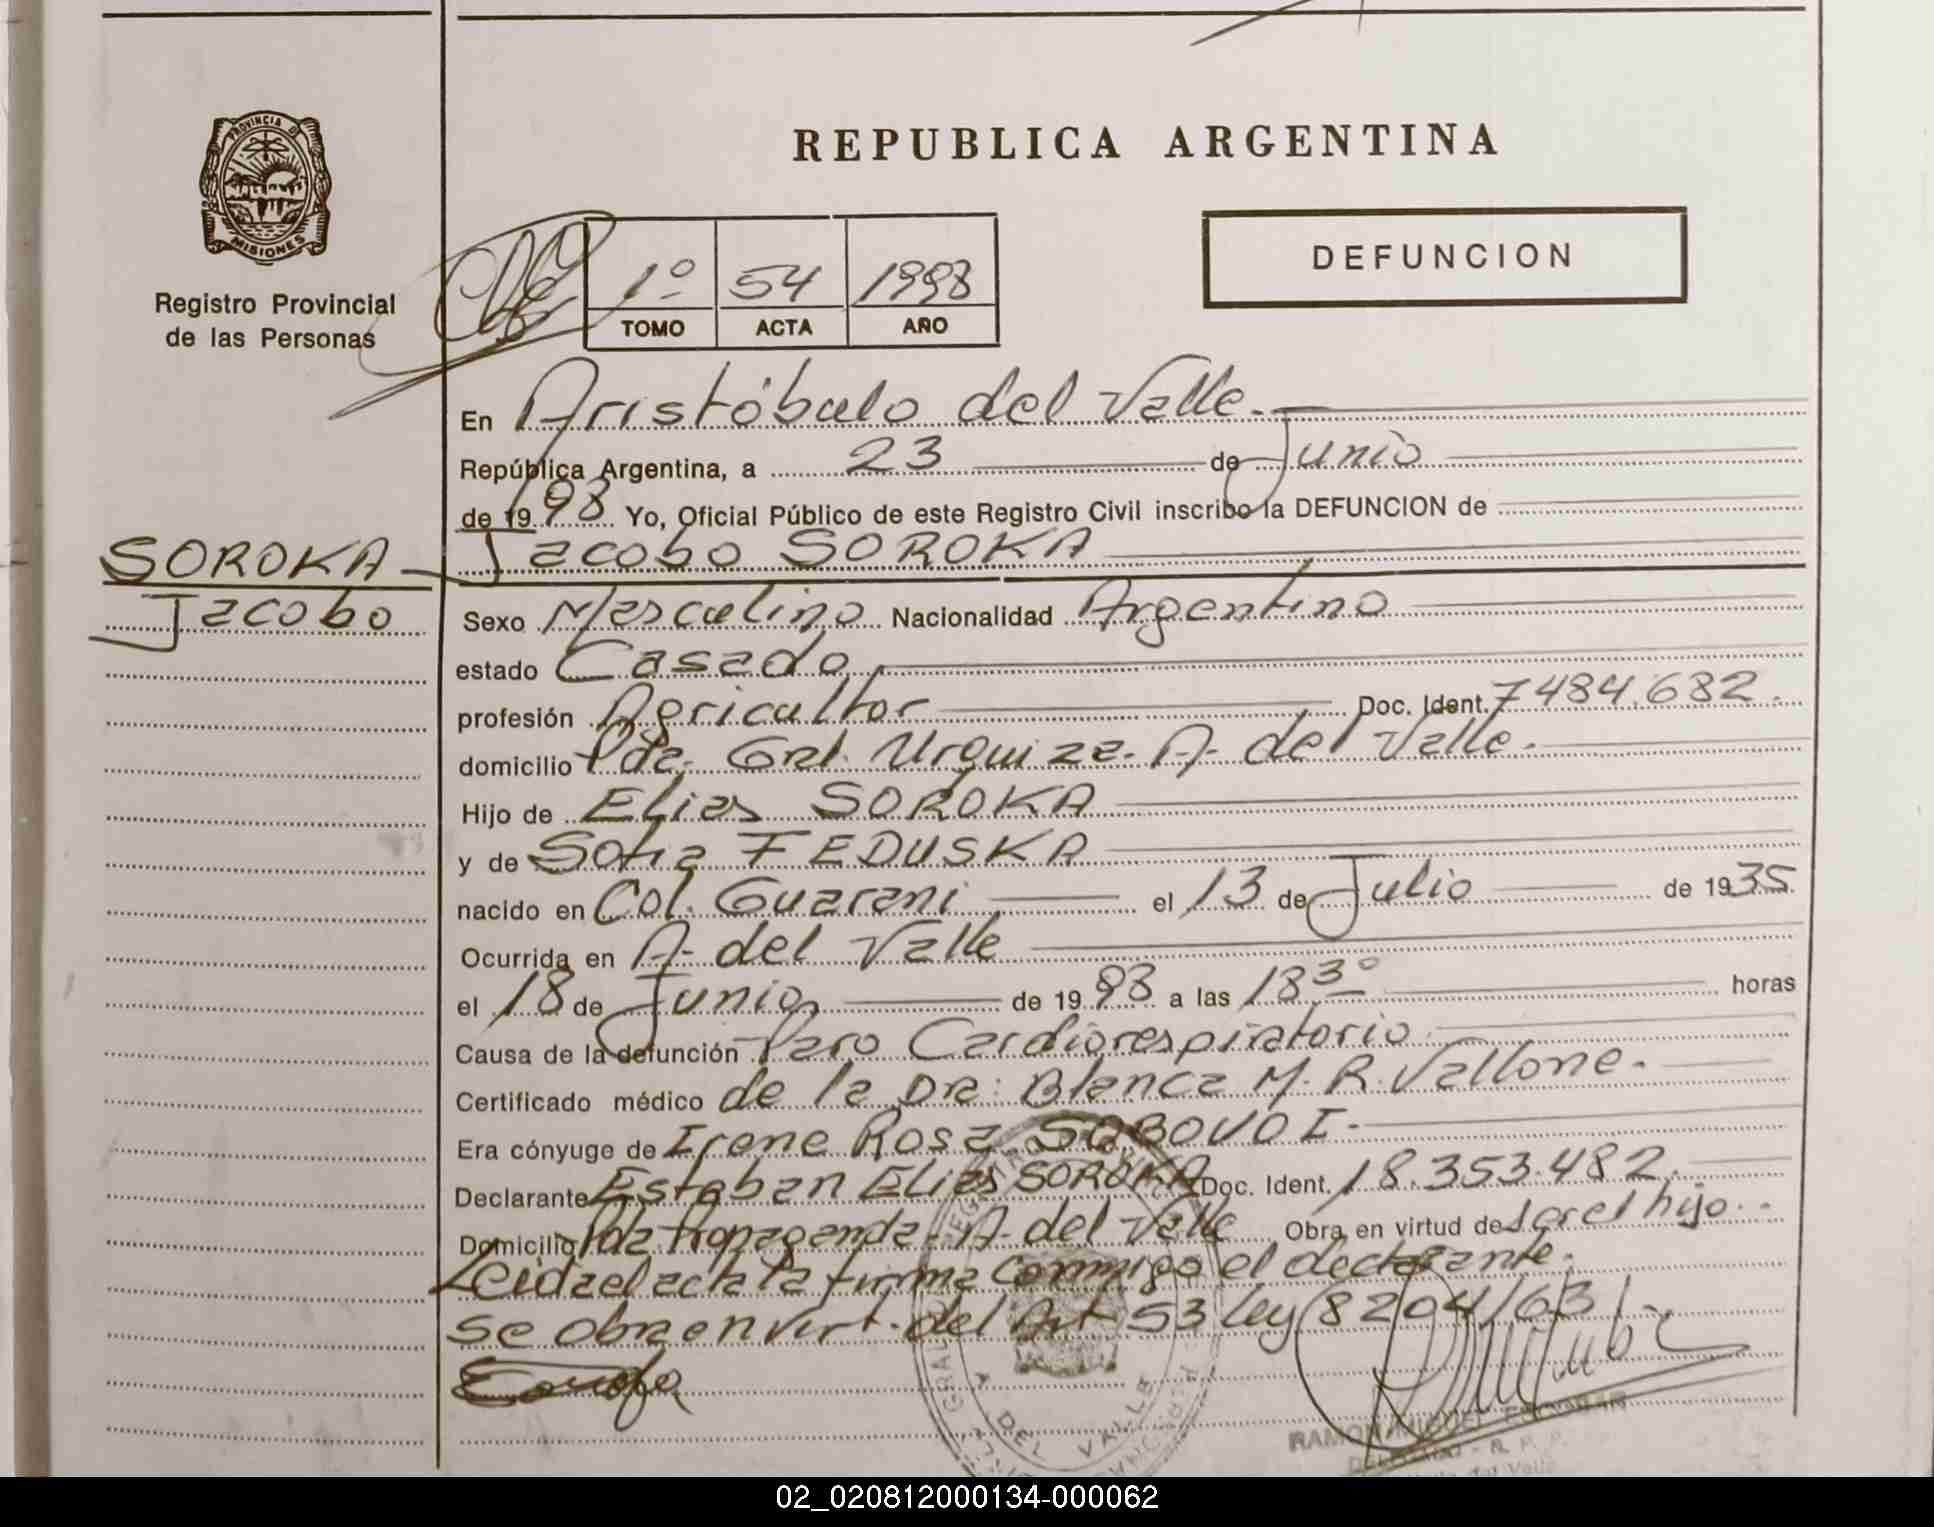 REPUBLICA ARGENTINA
PROVINCIA D
MISIONES
Registro Provincial
de las Personas
1º 54 1998
TOMO ACTA AÑO
DEFUNCION
En Aristóbulo del Valle.-
República Argentina, a 23 de Junio
de 1998 Yo, Oficial Público de este Registro Civil inscribo la DEFUNCION de
SOROKA Jacobo SOROKA
Jacobo Sexo Masculino Nacionalidad Argentino
estado Casado
profesión Agricultor Doc. Ident. 7484.682.
domicilio Pda. Gral. Urquiza. A. del Valle.
Hijo de Elias SOROKA
y de Sofia FEDUSKA
nacido en Col. Guarani el 13 de Julio de 1935
Ocurrida en A. del Valle
el 18 de Junio de 1998 a las 18 3º horas
Causa de la defunción Paro Cardiorespiratorio
Certificado médico de la Dra: Blanca M. R. Vallone.
Era cónyuge de Irene Rosa
Declarante Esteban Elias SOROKA Doc. Ident. 18.353.482.
Domicilio Pda Propaganda. A. del Valle Obra en virtud de ser el hijo.
Leida el acta la firma conmigo el declarante.
se obra en virt. del Art 53 ley 8204/63
A DEL VALLE
RAMON MIGUEL ESCOBAR
02_020812000134-000062